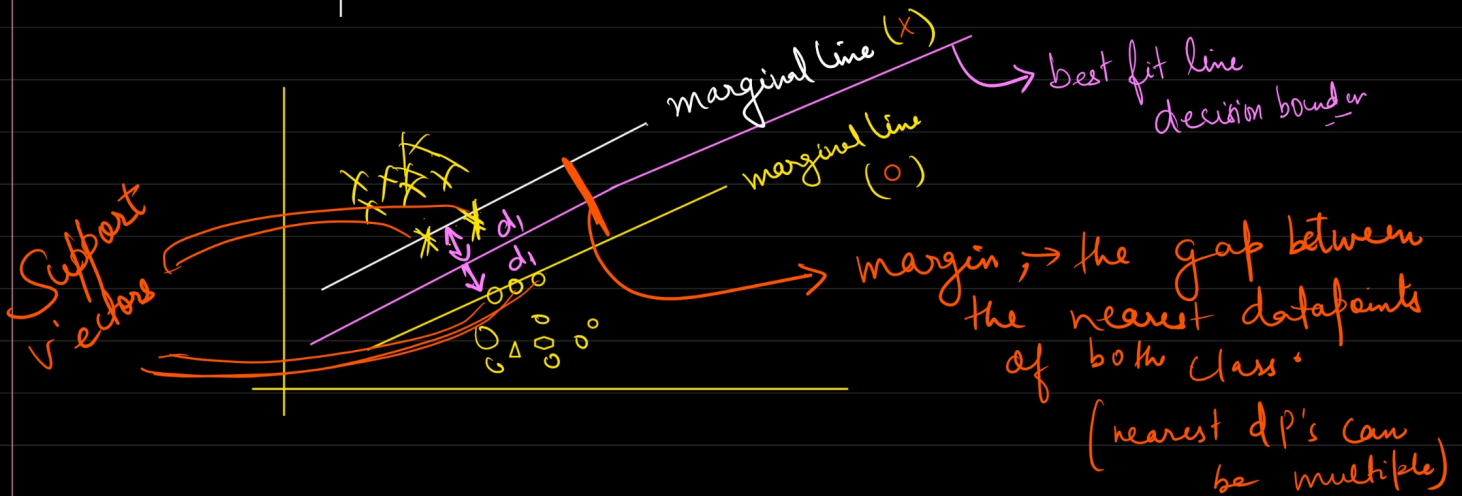 marginal line (x)
best fit line
decision boundar
marginal line
(O)
d1
d1
Support
vectors
margin, → the gap between
the nearest datapoints
of both class.
(nearest dp's can
be multiple)